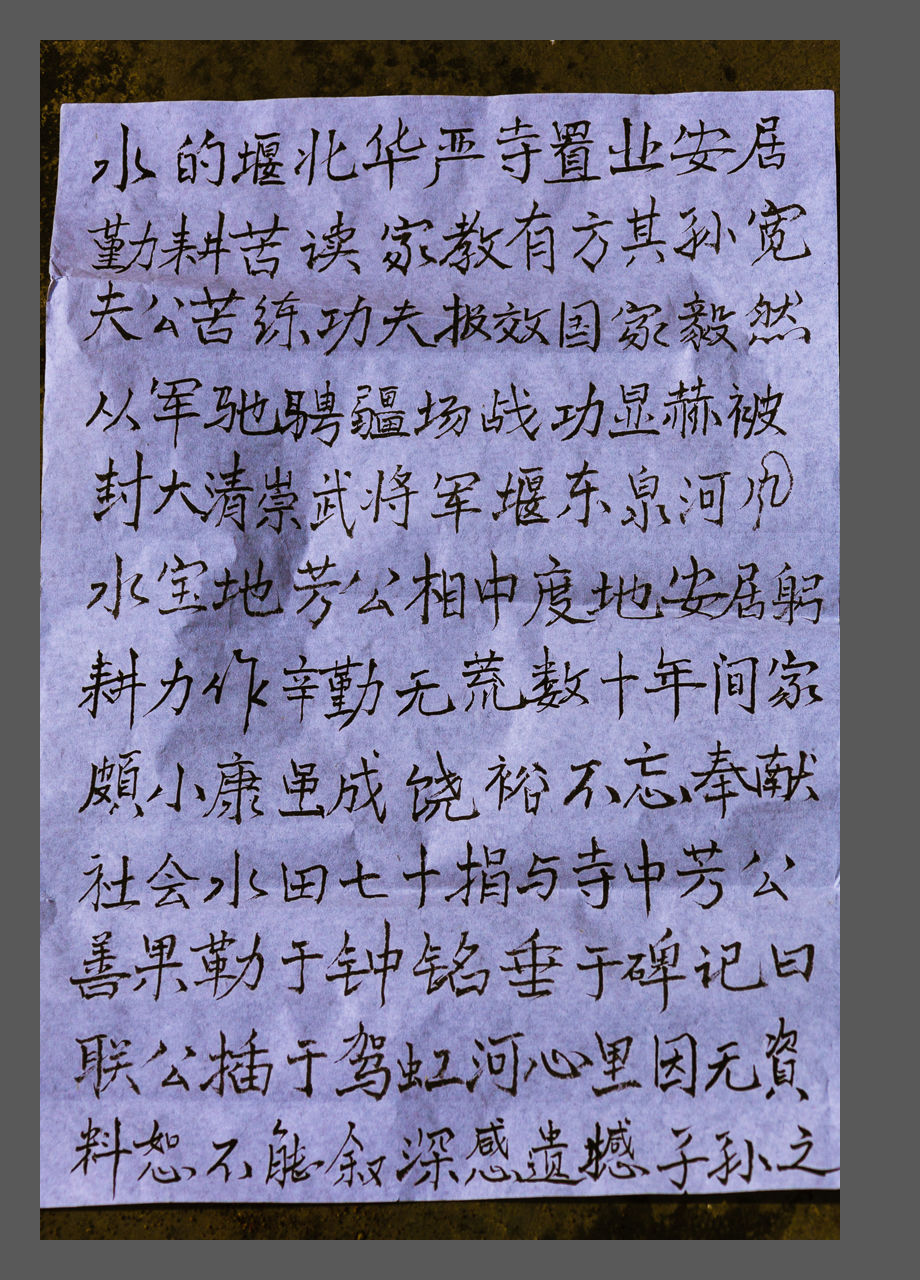 水的堰北华严寺置业安居
勤耕苦读家教有方其孙宽
夫公苦练功夫报效国家毅然
从军驰骋疆场战功显赫被
封大清崇武将军堰东泉河
水宝地芳公相中度地安居躬
耕力作辛勤无荒数十年间家
颇小康虽成饶裕不忘奉献
社会水田七十捐与寺中芳公
善果勒于钟铭垂于碑记曰
联公插于驾虹河心里因无資
料恕不能叙深感遗憾子孙之